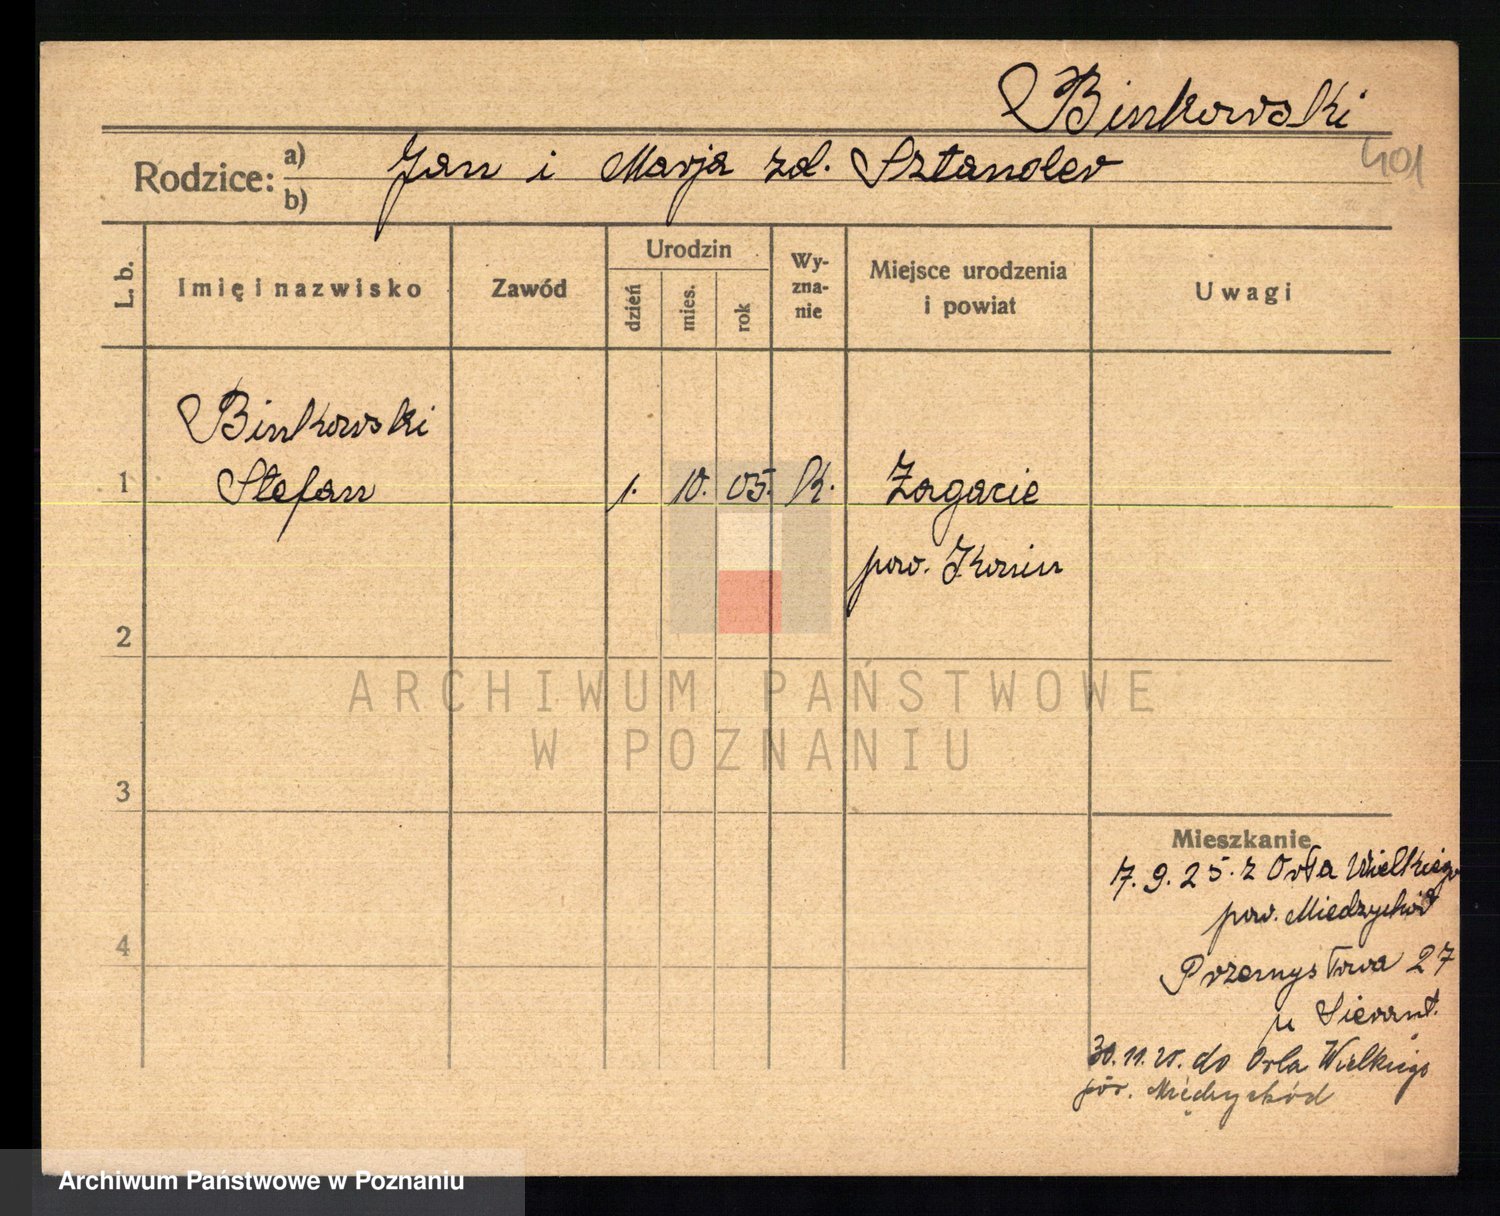 Binkowski
401
Rodzice: a) Jan i Marja zd. Sztandler
b)
L. b.
Imię i nazwisko
Zawód
Urodzin
dzień
mies.
rok
Wy-
zna-
nie
Miejsce urodzenia
i powiat
Uwagi
Binkowski
1 Stefan 1. 10. 05. K. Zagacie
pow. Konin
2
ARCHIWUM PAŃSTWOWE
W POZNANIU
3
Mieszkanie
17.9.25. z Orła Wielkiego
pow. Miedzychód
4
Przemysłowa 27
u Sierant.
30.11.25. do Orla Wielkiego
pow. Międzychód
Archiwum Państwowe w Poznaniu